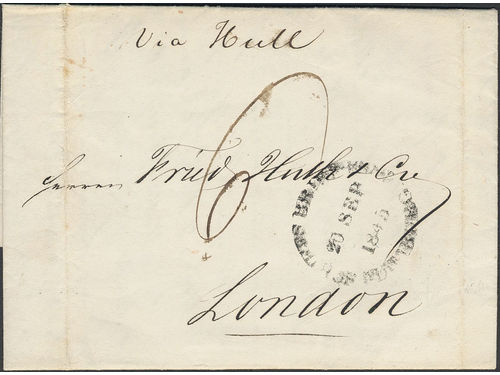 Via Hull
6
Herren Fried. Huth & Co
20 SEP
1845
London